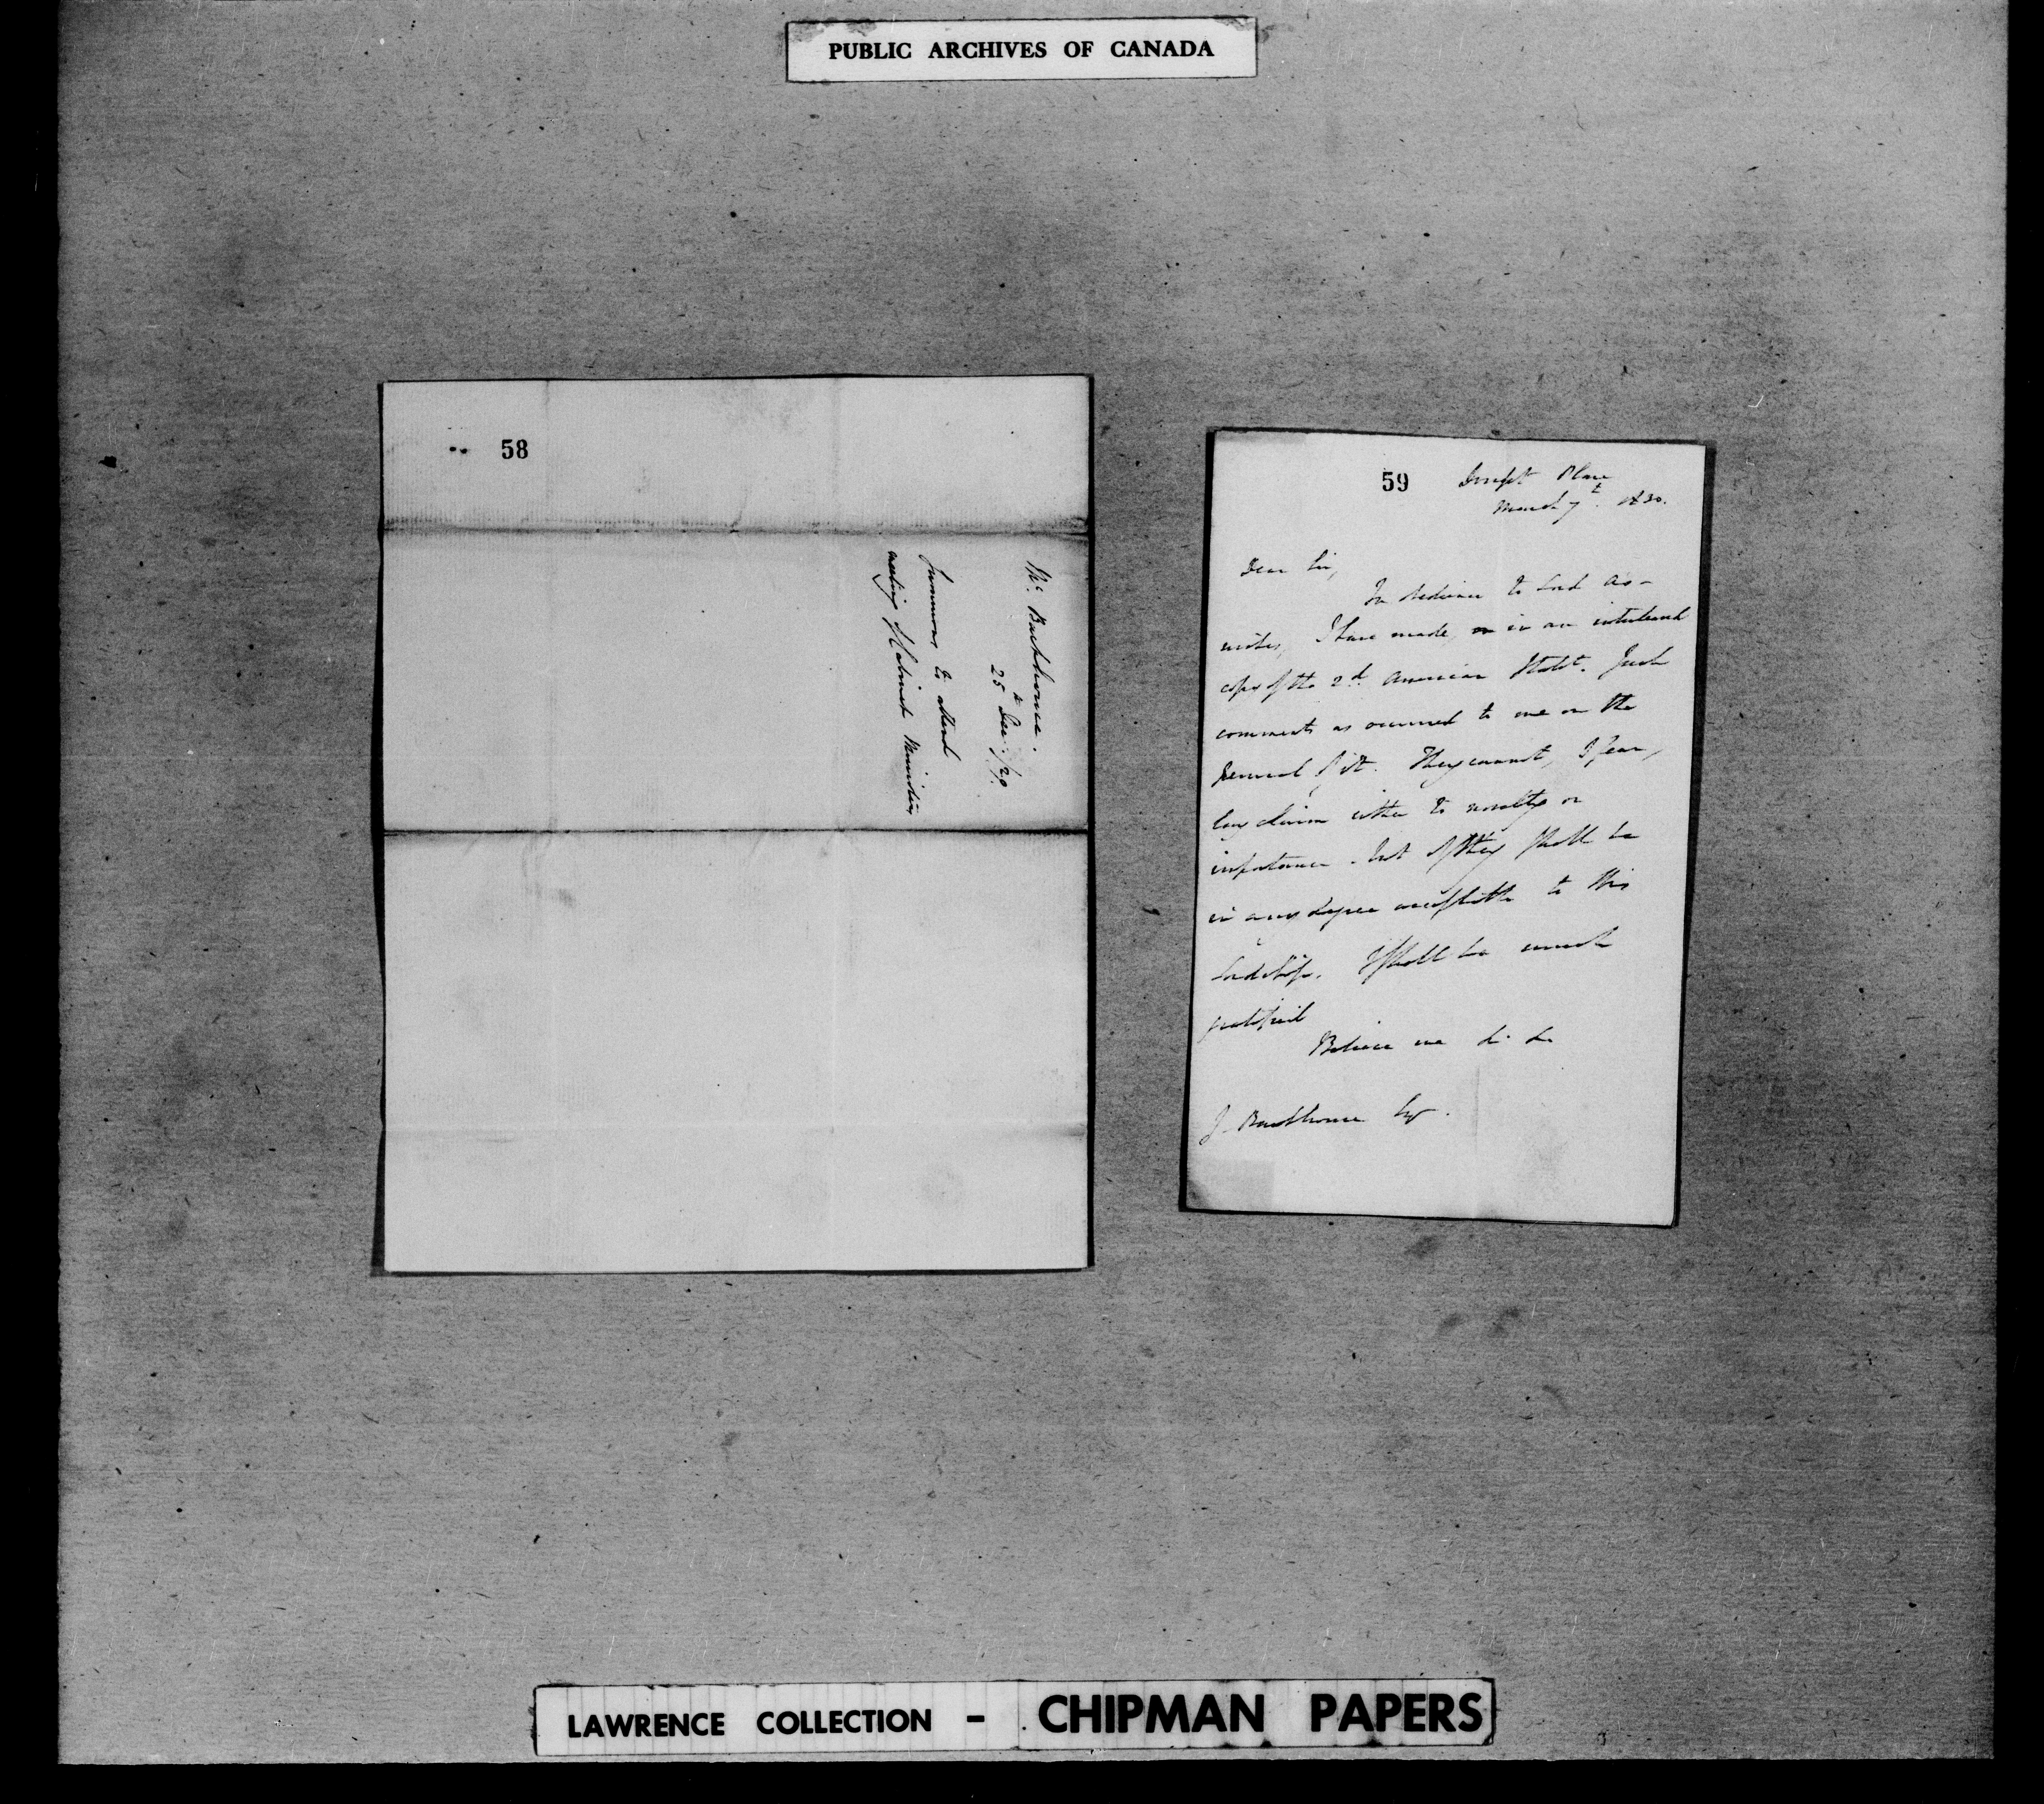 PUBLIC ARCHIVES OF CANADA
58
Mr. Backhouse.
25th Dec: /29
Summons to attend
meeting of Cabinet Ministers
59
Dorset Place
March 7th. 1830.
Dear Sir,
In obedience to Lord
wishes, I have made, in an interleaved
copy of the 2d American Statt. Such
comments as occurred to me on the
perusal of it. They cannot, I fear,
lay claim either to novelty or
importance. but if they shall be
in any degree acceptable to His
Lordship. I shall be much
gratified
Believe me &c &c
J. Backhouse Esqr.
LAWRENCE COLLECTION - CHIPMAN PAPERS